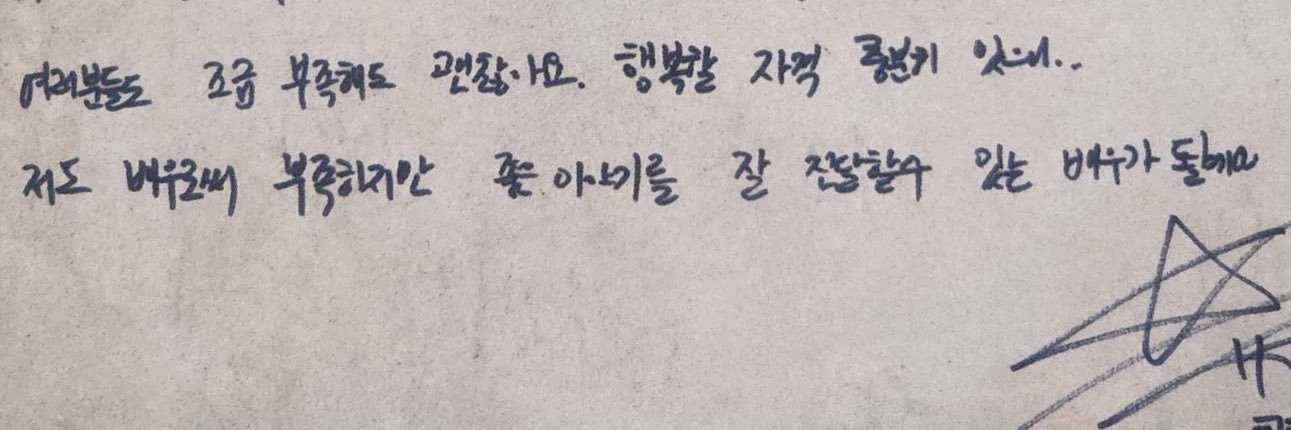 여러분들도 조금 부족해도 괜찮아요. 행복할 자격 충분히 있으니..
저도 배우로써 부족하지만 좋은 이야기를 잘 전달할수 있는 배우가 될게요